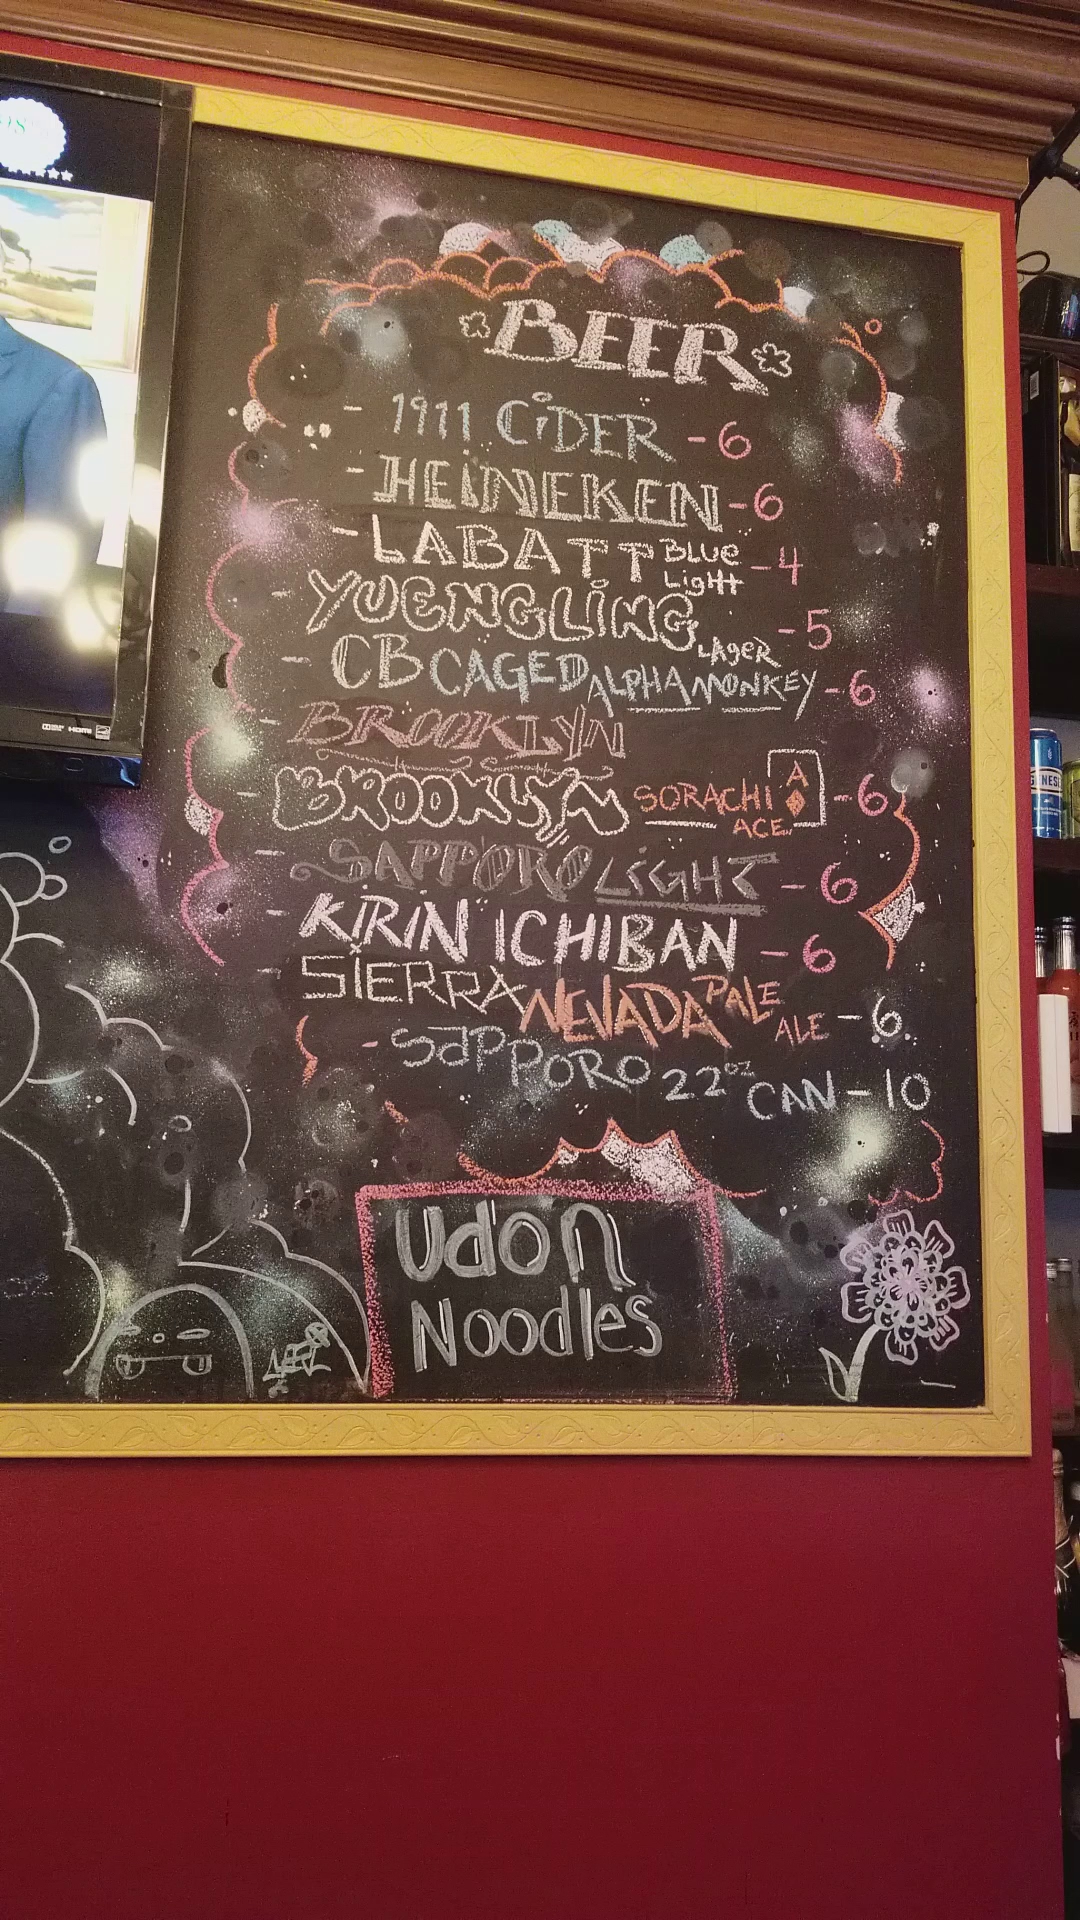 BEER
- 1911 CiDER - 6
- HEiNEKEN - 6
- LABATT BLUe Light - 4
- YUENGLiNG LAgeR - 5
- CB CAGED ALPHA MONKEY - 6
- BROOKLYN
BROOKLYN SORACHI ACE A - 6
- SAPPORO LiGHT - 6
- KIRIN ICHIBAN - 6
- SIERRA NEVADA PALE ALE - 6
- SAPPORO 22oz CAN - 10
Udon
Noodles
HDMI
GENESE